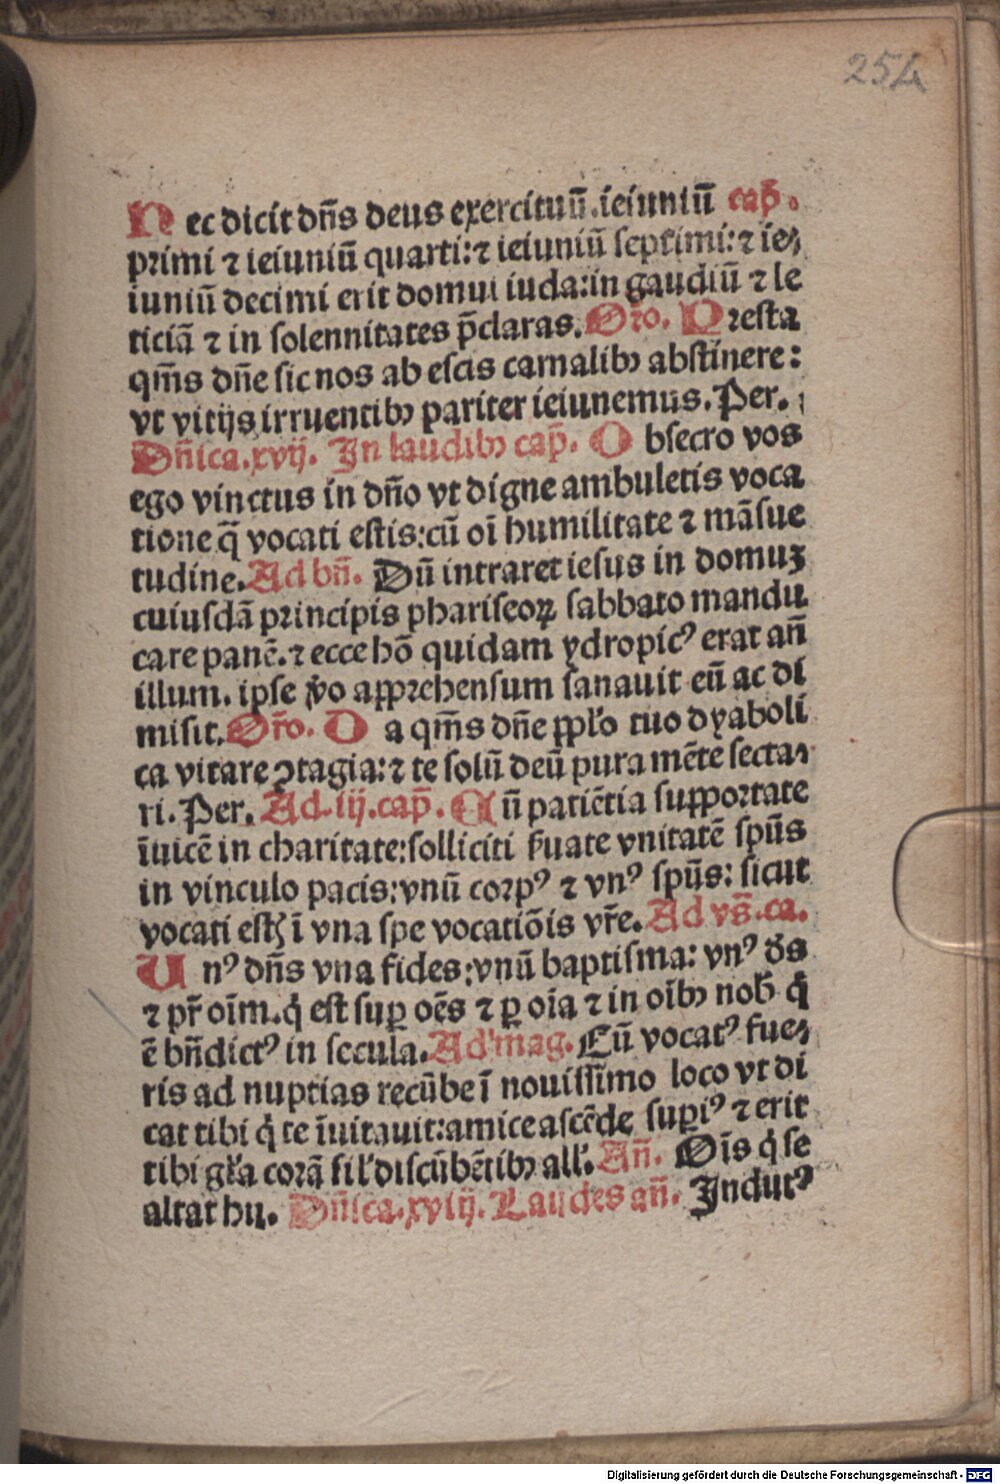 254
Nec dicit dn̄s deus exercituū.ieiuniū cap̄.
primi ⁊ ieiuniū quarti:⁊ ieiuniū septimi:⁊ ie⸗
iuniū decimi erit domui iuda:in gaudiū ⁊ le
ticiā ⁊ in solennitates p̄claras.Or̄o. Presta
qm̄s dn̄e sic nos ab escis carnalibꝫ abstinere:
vt vitijs irruentibꝫ pariter ieiunemus.Per.
Dn̄ica.xvij. In laudibꝫ cap̄. Obsecro vos
ego vinctus in dn̄o vt digne ambuletis voca
tione q̄ vocati estis:cū oī humilitate ⁊ māsue
tudine.Ad bn̄. Dū intraret iesus in domuꝫ
cuiusdā principis phariseoꝝ sabbato mandu
care panē.⁊ ecce hō quidam ydropicꝰ erat an̄
illum. ipse v̓o apprehensum sanauit eū ac di
misit.Or̄o. Da qm̄s dn̄e ppl̓o tuo dyaboli
ca vitare ꝯtagia:⁊ te solū deū pura mēte secta⸗
ri. Per. Ad.iij.cap̄. Cū patiētia supportate
īuicē in charitate:solliciti ẜuate vnitatē sp̄us
in vinculo pacis:vnū corpꝰ ⁊ vnꝰ sp̄us: sicut
vocati estꝭ ī vna spe vocatiōis vr̄e.Ad vs̄.ca.
Unꝰ dn̄s vna fides:vnū baptisma: vnꝰ d̓s
⁊ pr̄ oīm.q̓ est suꝑ oēs ⁊ ꝑ oīa ⁊ in oībꝫ nob̓ q̓
ē bn̄dictꝰ in secula.Ad mag. Cū vocatꝰ fue⸗
ris ad nuptias recūbe ī nouissimo loco vt di
cat tibi q̓ te īuitauit:amice ascēde suꝑiꝰ ⁊ erit
tibi gl̓a corā sil̓ discūbētibꝫ all̓. An̄. Oīs q̓ se
altat hu. Dn̄ica.xviij. Laudes an̄. Indutꝰ
Digitalisierung gefördert durch die Deutsche Forschungsgemeinschaft - DFG